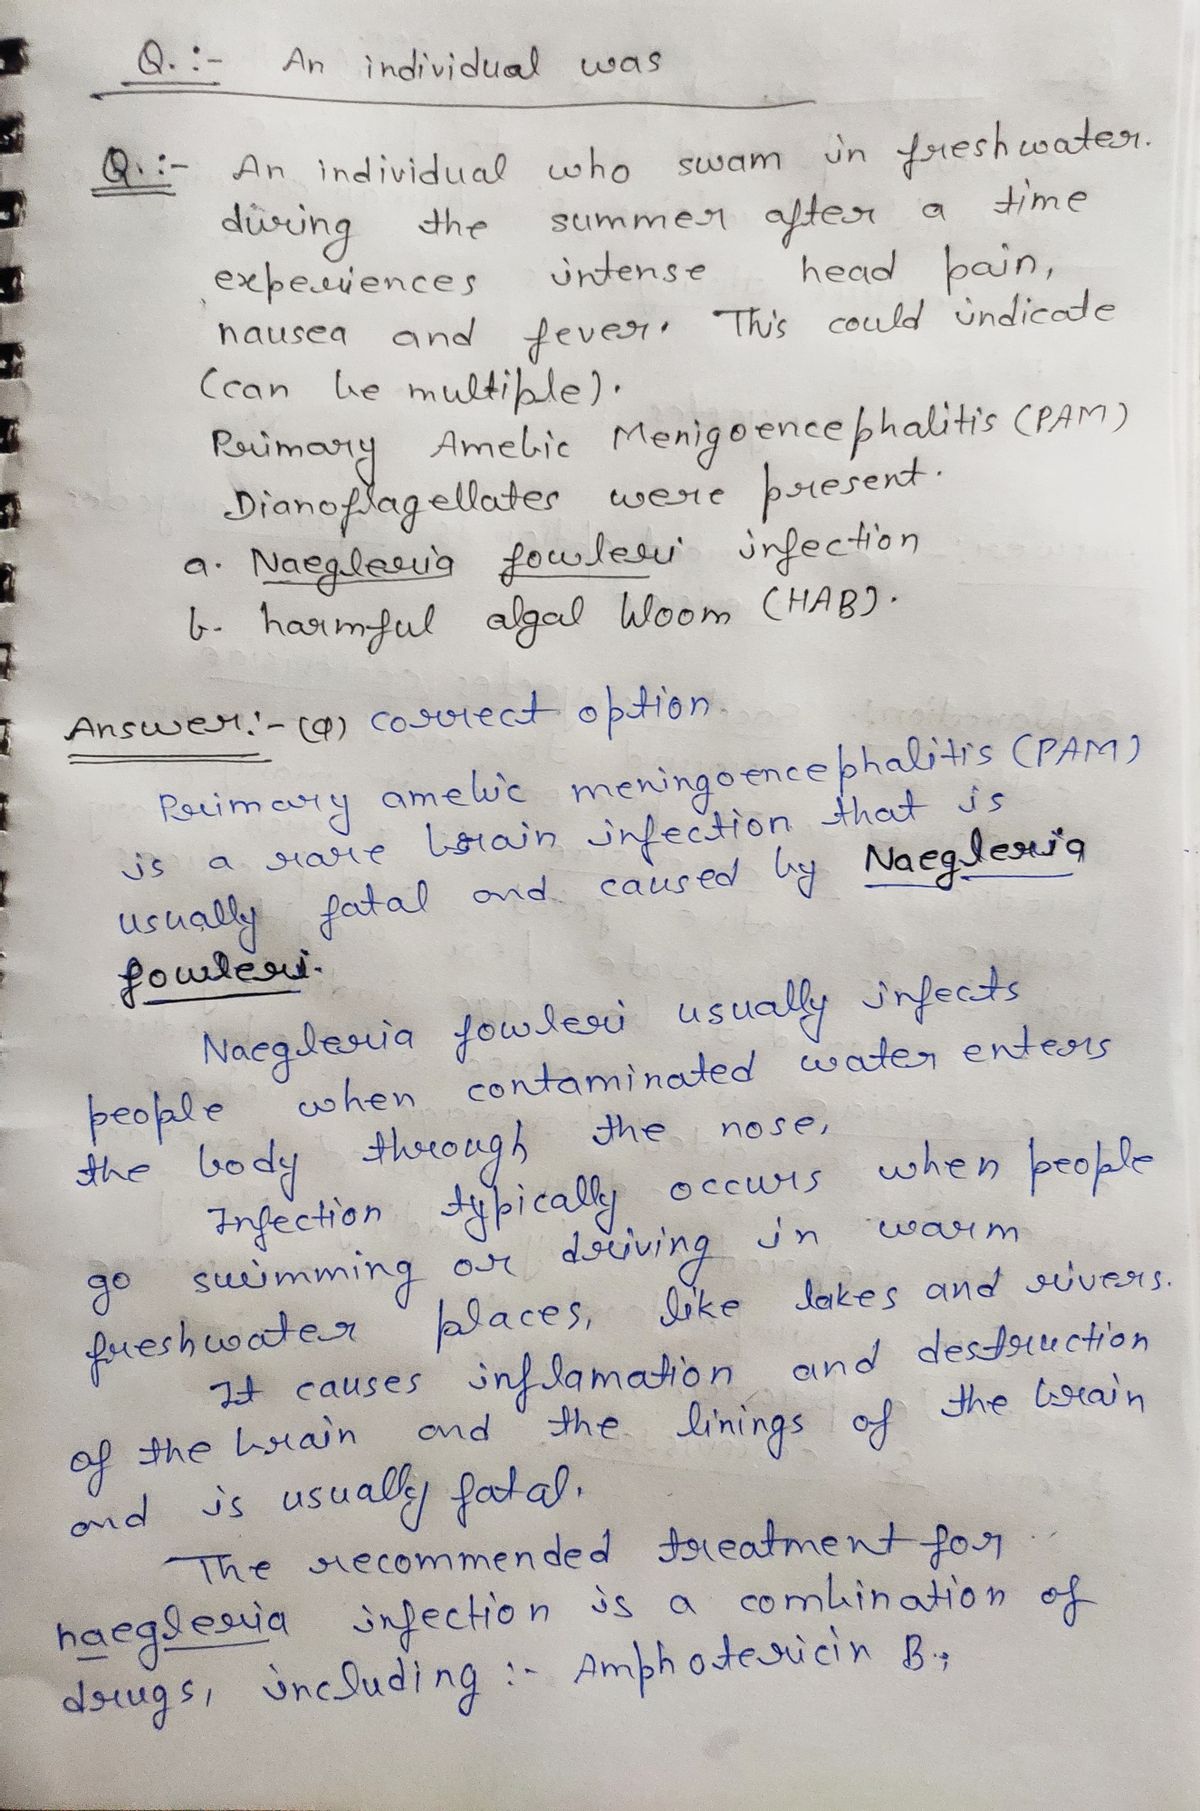 Q. :- An individual was
Q. :- An individual who swam in freshwater.
during the summer after a time
experiences intense head pain,
nausea and fever. This could indicate
(can be multiple).
Primary Amebic Menigoencephalitis (PAM)
Dianoflagellates were present.
a. Naegleria fowleri infection
b. harmful algal bloom (HAB).
Answer:- (a) correct option.
Primary amebic meningoencephalitis (PAM)
is a rare brain infection that is
usually fatal and caused by Naegleria
fowleri.
Naegleria fowleri usually infects
people when contaminated water enters
the body through the nose,
Infection typically occurs when people
go swimming or driving in warm
freshwater places, like lakes and rivers.
It causes inflamation and destruction
of the brain and the linings of the brain
and is usually fatal.
The recommended treatment for
naegleria infection is a combination of
drugs, including :- Amphotericin B,